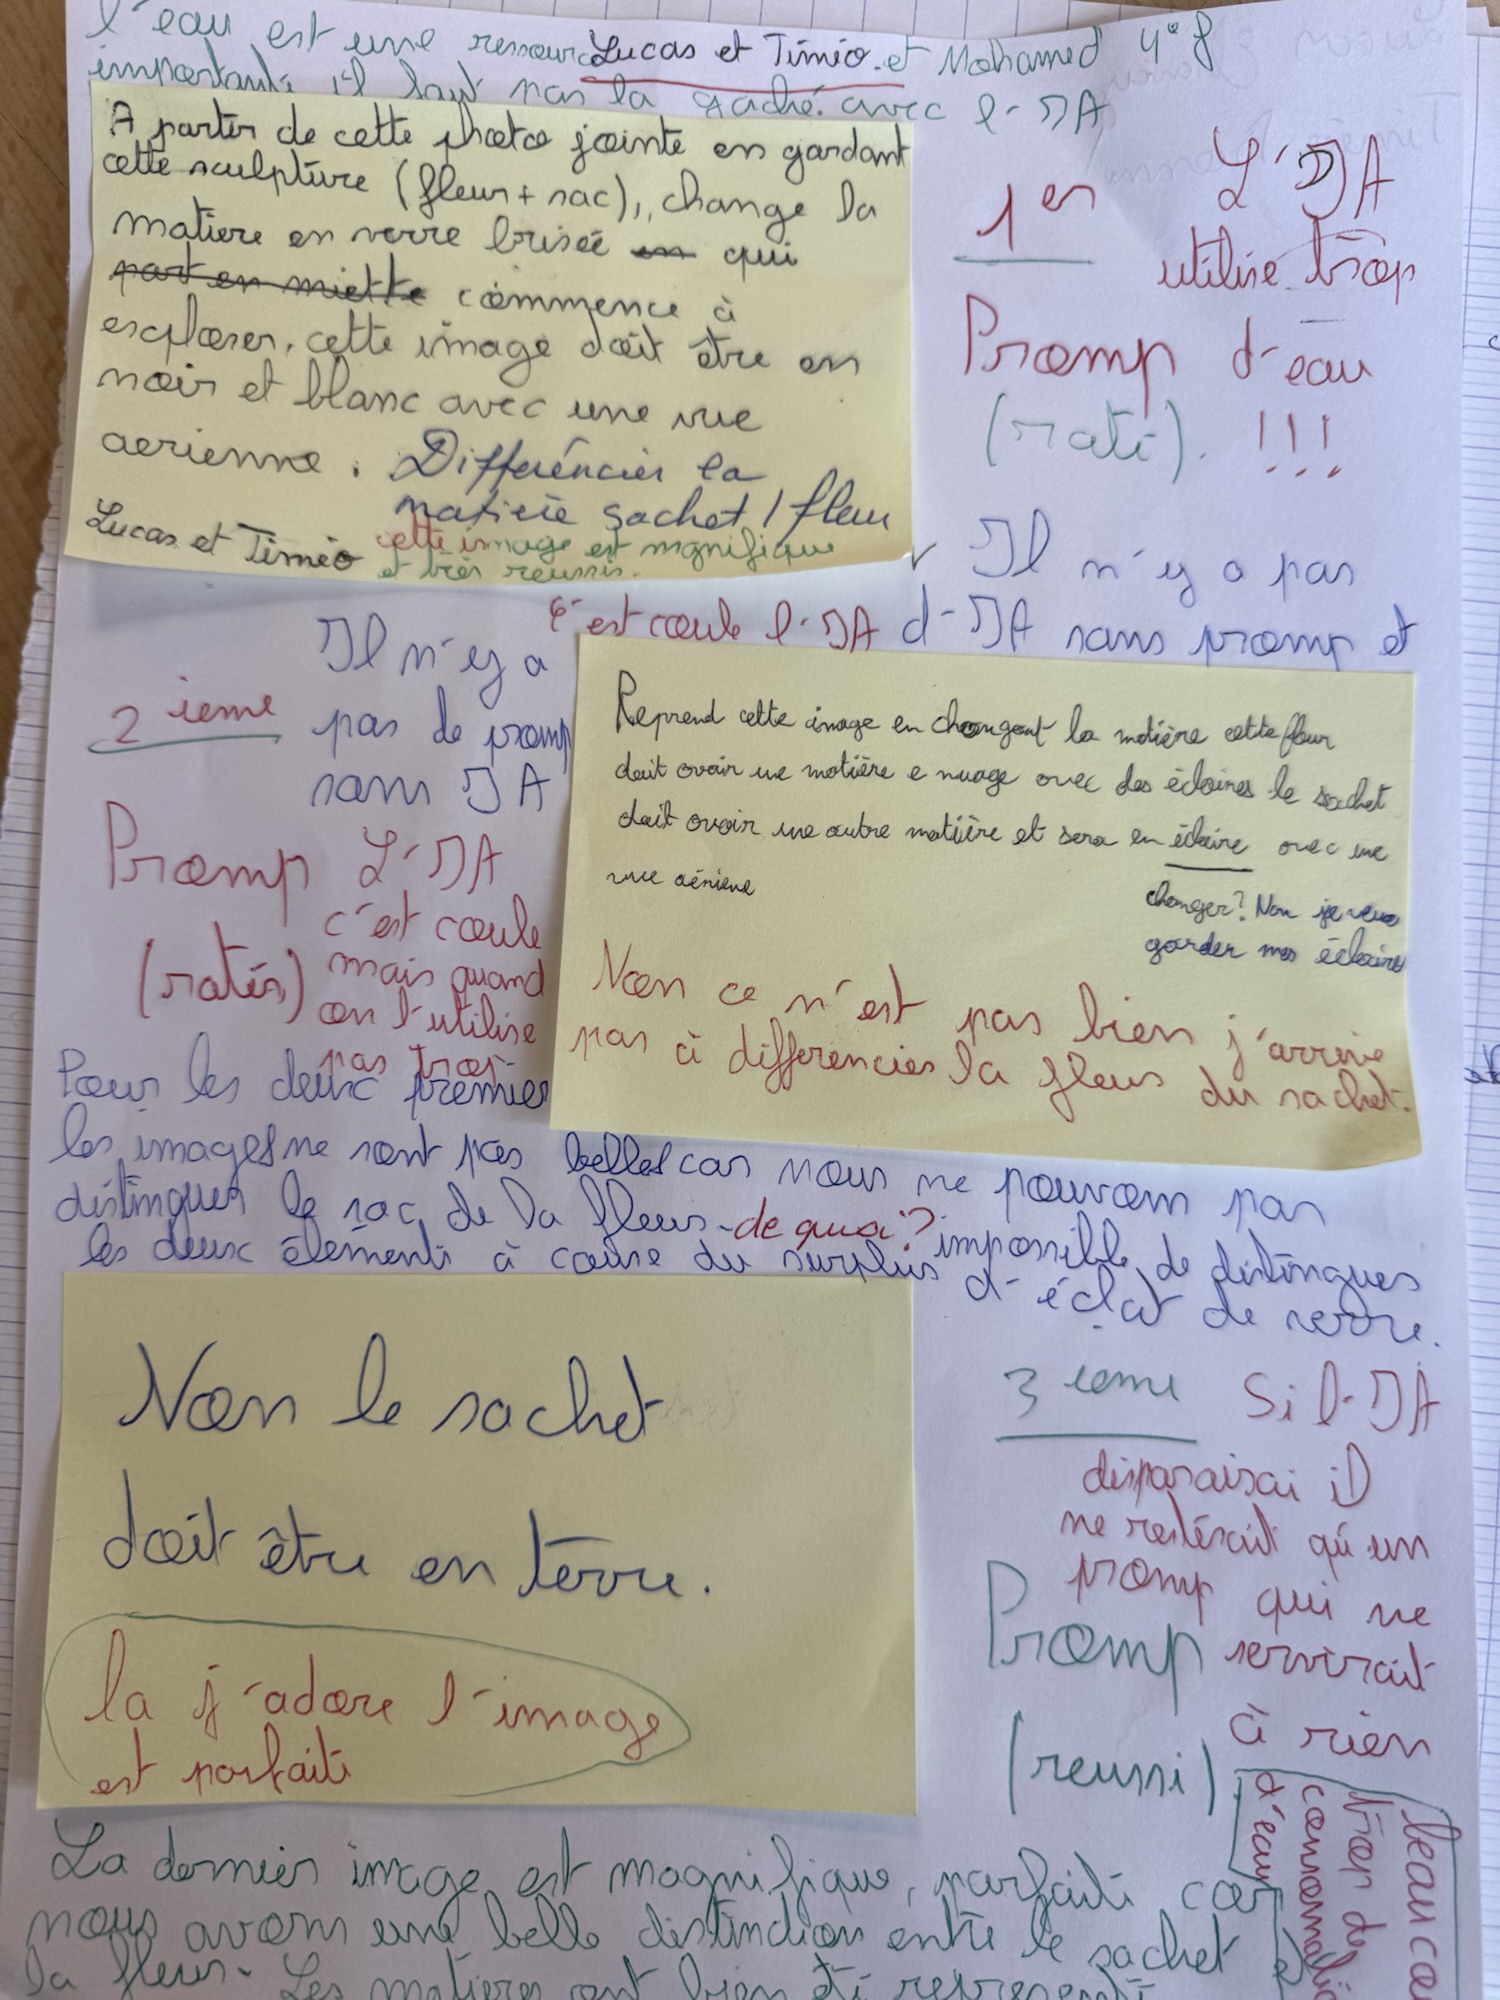 l'eau est une ressource
Lucas et Timéo. et Mohamed 4° f
importante il faut pas la gaché. avec l-IA
A partir de cette photo jointe en gardant
cette sculpture (fleur + sac), change la
matiere en verre brisée en qui
part en miette commence à
exploser, cette image doit être en
noir et blanc avec une vue
aerienne. Différencier la
matière sachet / fleur
Lucas et Timéo
cette image est mgnifique
et très reussis.
1er
Promp
(raté).
L'IA
utilise trop
d'eau
!!!
Il n'y a pas
d-IA sans promp et
Il n'y a
pas de promp
sans IA
c-est coule l-IA
2ieme
Promp
(ratés)
L'IA
c'est coule
mais quand
on l'utilise
pas trop
Reprend cette image en changent la matière cette fleur
doit avoir une matière e nuage avec des éclaires le sachet
doit avoir une autre matière et sera en éclaire avec une
vue aériene
changer? Non je veux
garder mes éclaires
Non ce n'est pas bien j'arrive
pas à differencier la fleur du sachet.
Pour les deux premier
les images ne sont pas belles car nous ne pouvons pas
distinguer le sac de la fleur - de quoi? impossible de distingues
les deux élements à cause du surplus d-éclat de verre.
Non le sachet
doit être en terre.
la j'adore l'image
est parfaite
3ieme
Promp
(reussi)
Si l-IA
disparaisai il
ne resterait qu'un
promp qui ne
servirait
à rien
beaucou
trop de
consomatio
d'eau
La dernier image est magnifique, parfaite car
nous avons une belle distinction entre le sachet
la fleur. Les matieres ont bien été representé